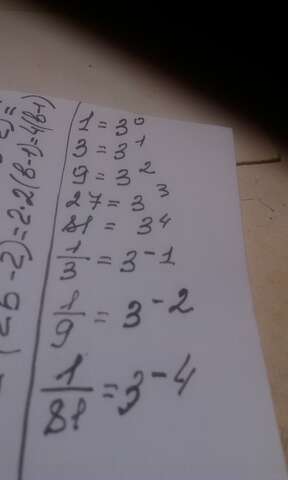 1 = 3⁰
3 = 3¹
9 = 3²
27 = 3³
81 = 3⁴
1/3 = 3⁻¹
1/9 = 3⁻²
1/81 = 3⁻⁴
(2b-2)=2·2(b-1)=4(b-1)